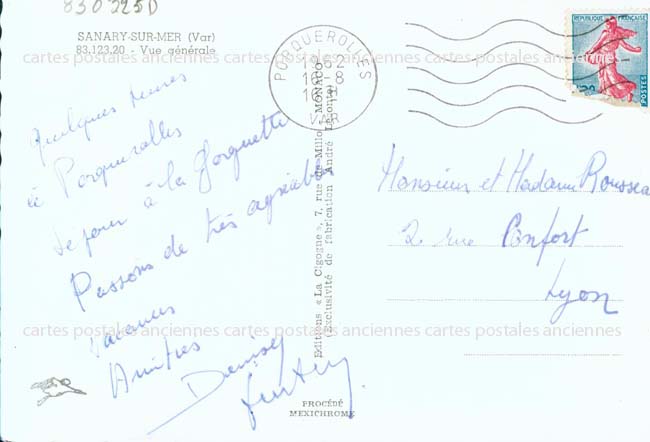 830225D
SANARY-SUR-MER (Var)
83.123.20 - Vue générale
Quelques heures
à Porquerolles
Séjour à la Gorguette
Passons de très agréables
vacances
Amitiés
Denise
Editions « La Cigogne », 7, rue de Millo, MONACO
(Exclusivité de fabrication André Leconte)
PROCÉDÉ
MEXICHROME
PORQUEROLLES
VAR
REPUBLIQUE FRANÇAISE
POSTES
Monsieur et Madame Rousseau
2 rue Confort
Lyon
cartes postales anciennes cartes postales anciennes cartes postales anciennes
cartes postales anciennes cartes postales anciennes cartes postales anciennes